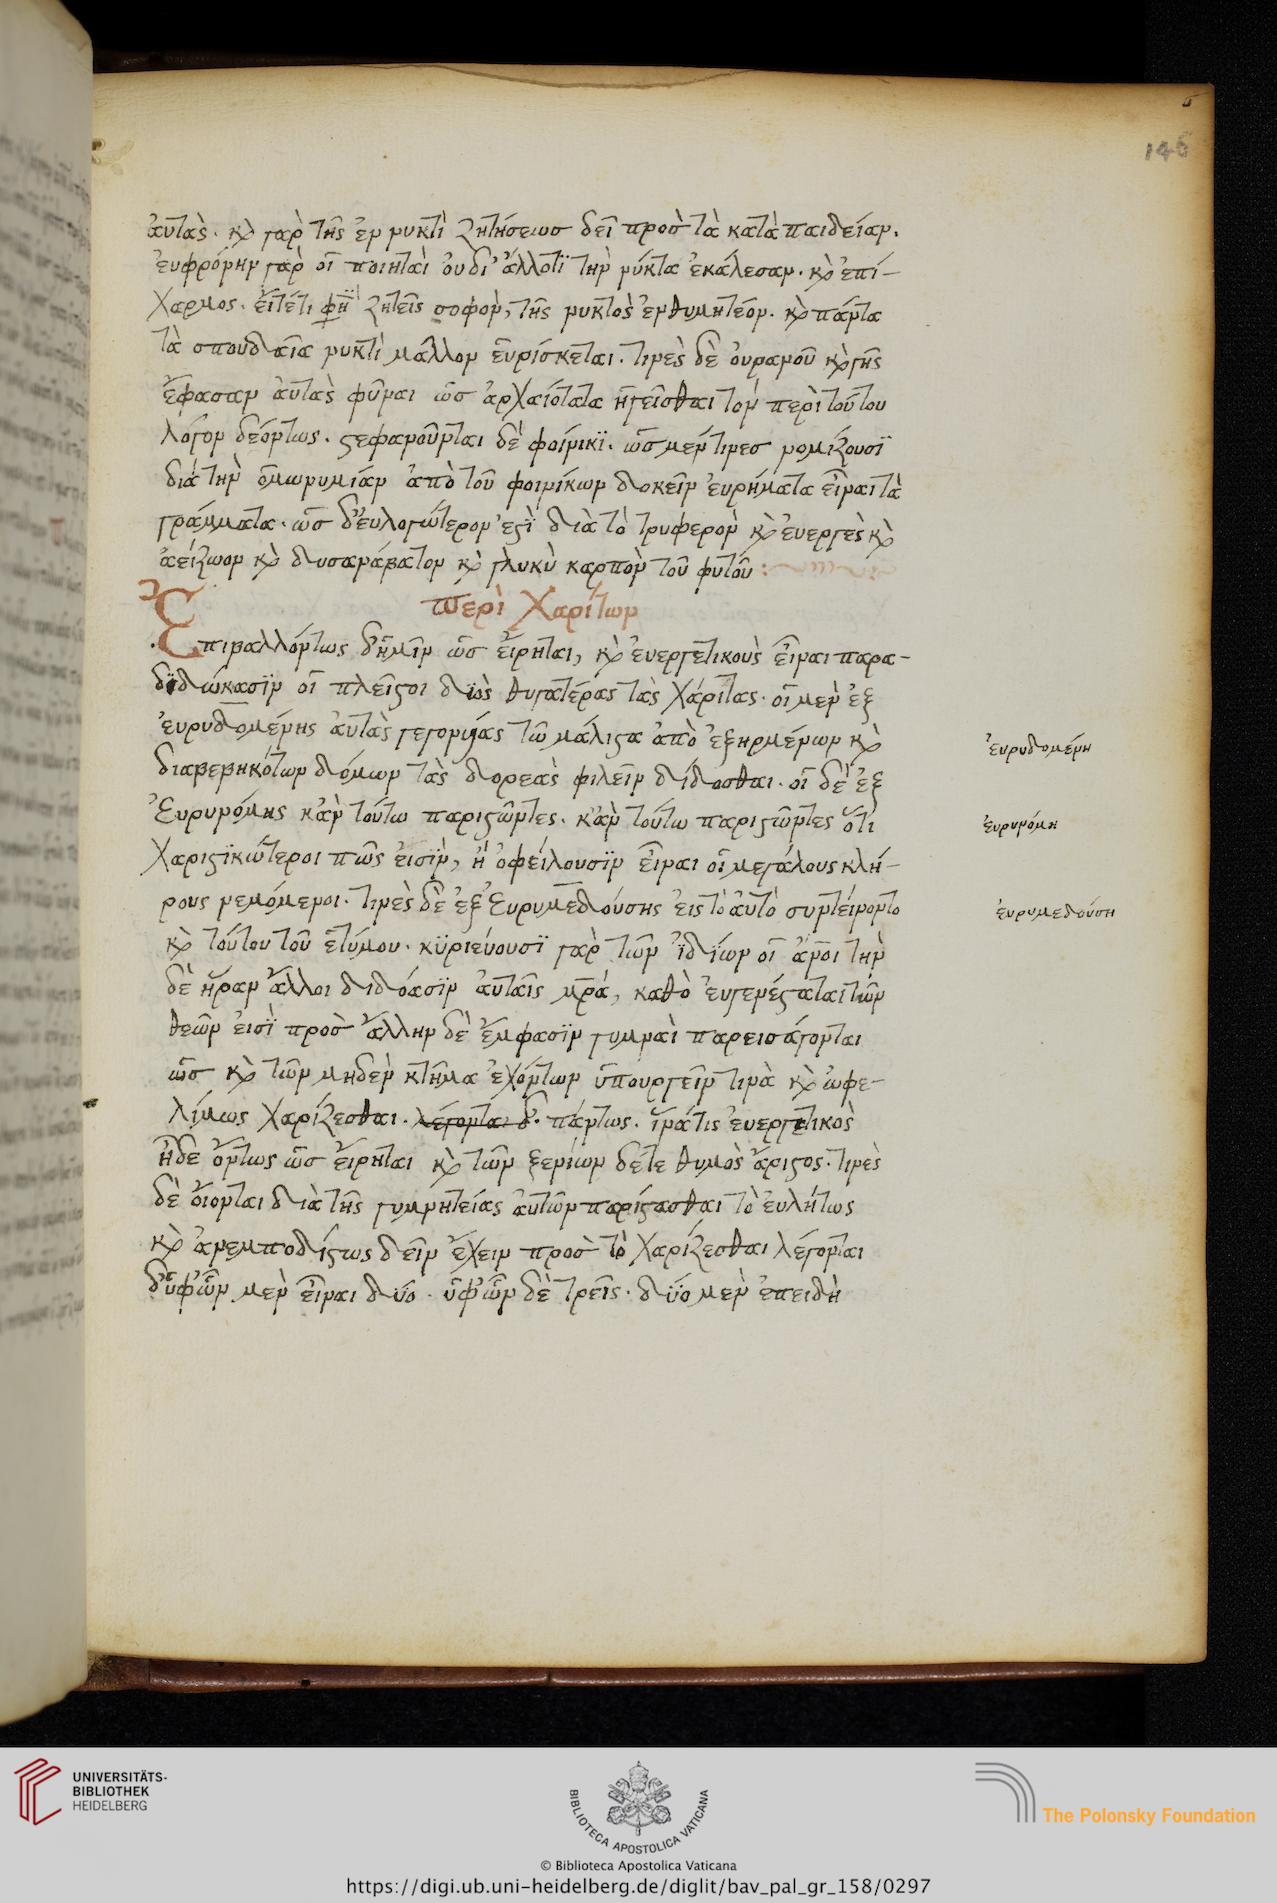 146
ἀυτὰς. κὶ γὰρ τῆς ἐν νυκτὶ ζητήσεως δεῖ προσ τὰ κατὰ παιδείαν.
ἐυφρόνην γὰρ οἱ ποιηταὶ ὀυδι' ἄλλοτϊ τὴν νύκτα ἐκάλεσαν. κὶ ἐπί-
χαρμος. εἴτέτι φη ζητεῖς σοφὸν, τῆς νυκτὸς ἐνθυμητέον. κὶ πάντα
τὰ σπουδαῖα νυκτὶ μᾶλλον ἑυρίσκεται. τινὲς δὲ ὀυρανοῦ κὶ γῆς
ἔφασαν ἀυτὰς φῦναι ὡσ ἀρχαιότατα ἡγεῖσθαι τὸν περὶ τούτου
λόγον δεόντως. στεφανοῦνται δὲ φοίνικϊ. ὡσ μέν τινεσ νομίζουσϊ
διὰ τὴν ὁμωνυμίαν ἀπὸ τοῦ φοινίκων δοκεῖν ἑυρήματα εἶναι τὰ
γράμματα. ὡσ δ' ἐυλογώτερον ἐστϊ διὰ τὸ τρυφερὸν κὶ ἐυεργὲς κὶ
ἀείζωον κὶ δυσανάβατον κὶ γλυκὺ καρπὸν τοῦ φυτοῦ :
περὶ Χαρίτων
Ἐπιβαλλόντως δ' ἡμῖν ὡσ εἴρηται, κὶ ἐυεργετικοὺς εἶναι παρα-
δϊδώκασϊν οἱ πλεῖστοι δϊὸς θυγατέρας τὰς χάριτας. οἱ μὲν ἐξ
ἐυρυδομένης ἀυτὰς γεγονυίας τῶ μάλιστα ἀπὸ ἐξηρμένων κὶ
διαβεβηκότων δόμων τὰς δορεὰς φιλεῖν δίδοσθαι. οἱ δὲ ἐξ
Ἐυρυνόμης κἀν τούτω παριστῶντες. κἀν τούτω παριστῶντες ὅτι
χαριστϊκώτεροι πῶς ἐισϊν, ἢ ὀφείλουσϊν εἶναι οἱ μεγάλους κλή-
ρους νεμόμενοι. τινὲς δὲ ἐξ Ἐυρυμεδούσης ἐις τὸ ἀυτὸ συντείνοντο
κὶ τούτου τοῦ ἐτύμου. κϋριεύουσϊ γὰρ τῶν ἰδϊων οἱ ἀνοι τὴν
δὲ ἥραν ἄλλοι διδόασϊν ἀυταῖς μρά, καθὸ ἐυγενέσταται τῶν
θεῶν ἐισὶ προσ ἄλλην δὲ ἔμφασϊν γυμναὶ παρεισάγονται
ὡσ κὶ τῶν μηδὲν κτῆμα ἐχόντων ὑπουργεῖν τινὰ κὶ ὠφε-
λίμως χαρίζεσθαι. λέγονται δ. πάντως. ἵνα τις ἐυεργετικὸς
ἦδε ὄντως ὡσ εἴρηται κὶ τῶν ξενίων δέτε θυμὸς ἄριστος. τινὲς
δὲ οἴονται διὰ τῆς γυμνητείας ἀυτῶν παρίστασθαι τὸ ἐυλήτως
κὶ ἀνεμποδίστως δεῖν ἔχειν προσ τὸ χαρίζεσθαι λέγονται
δ' ὑφ' ὧν μὲν εἶναι δύο. ὑφ' ὧν δὲ τρεῖς. δύο μὲν ἐπειδὴ
ἐυρυδομένη
ἐυρυνόμη
ἐυρυμεδούση
UNIVERSITÄTS-
BIBLIOTHEK
HEIDELBERG
BIBLIOTECA APOSTOLICA VATICANA
© Biblioteca Apostolica Vaticana
The Polonsky Foundation
https://digi.ub.uni-heidelberg.de/diglit/bav_pal_gr_158/0297